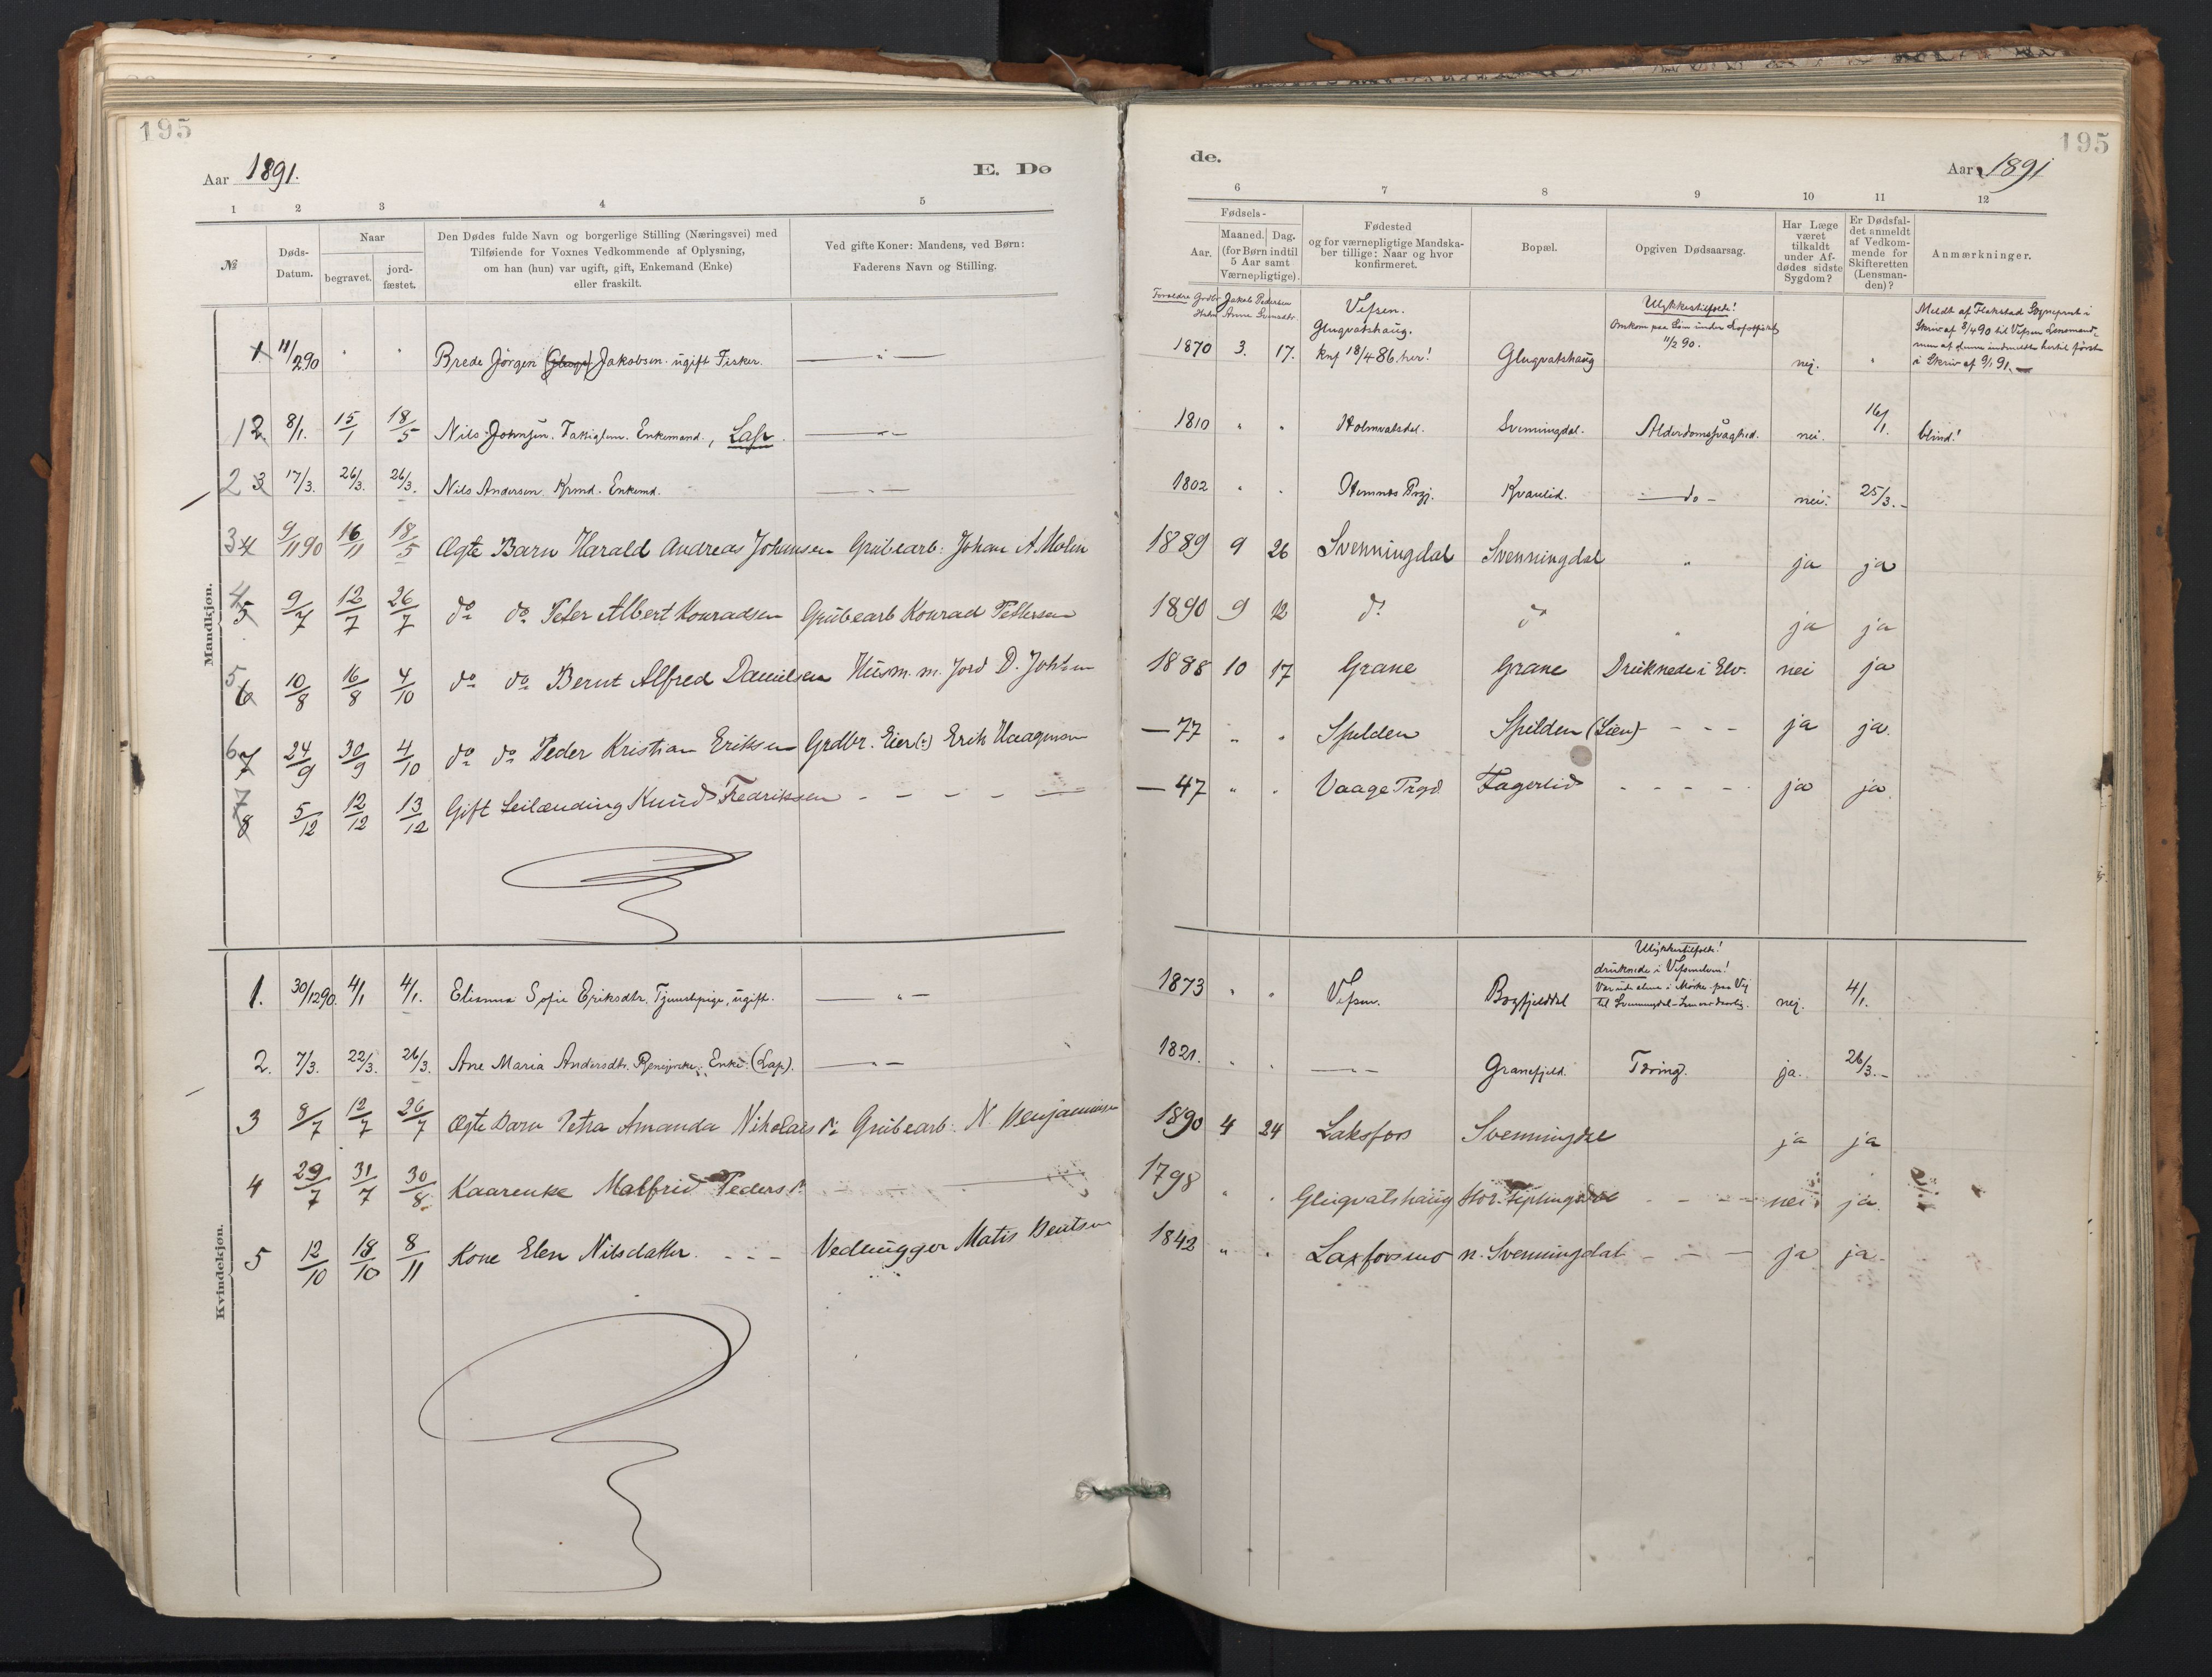 195
Aar 1891.
E. Dø
1 2 3 4 5
№
Døds-Datum.
Naar
begravet.
jord-fæstet.
Den Dødes fulde Navn og borgerlige Stilling (Næringsvei) med
Tilføiende for Voxnes Vedkommende af Oplysning,
om han (hun) var ugift, gift, Enkemand (Enke)
eller fraskilt.
Ved gifte Koner: Mandens, ved Børn:
Faderens Navn og Stilling.
Mandkjøn.
1 11/2 90 " " Brede Jörgen Jakobsen. ugift Fisker. — " —
1 2. 8/1. 15/1 18/5 Nils Johnsen. Enkemand., Lap. — " —
2 3 17/3. 26/3. 26/3. Nils Andersen. Krmd. Enkemd. — " —
3 4 9/11 90 16/11 18/5 Ægte Barn Harald Andreas Johansen Grubearb: Johan A. Molin
4 5 9/7 12/7 26/7 do do Peter Albert Konradsen Grubearb Konrad Pettersen
5 6 10/8 16/8 4/10 do do Bernt Alfred Danielsen Husm. m. Jord D. Johnsen
6 7 24/9 30/9 4/10 do do Peder Kristian Eriksen Grdbr. Eier(?) Erik Haagensen
7 8 5/12 12/12 13/12 Gift Leilænding Knud Fredriksen - - - - —
Kvindekjøn.
1. 30/12 90. 4/1 4/1. Elianna Sofie Eriksdtr. Tjenestepige, ugift. — " —
2. 7/3. 22/3. 26/3. Ane Maria Andersdtr. Enke. (Lap). — " —
3 8/7 12/7 26/7 Ægte Barn Petra Amanda Nikolaisdr. Grubearb: N. Benjaminsen
4 29/7 31/7 30/8 Kaarenke Malfrid Pedersdr.
5 12/10 18/10 8/11 Kone Elen Nilsdatter. - - - Vedhugger Matis Bentsen
de.
195
Aar 1891
6 7 8 9 10 11 12
Fødsels-
Aar.
Maaned. Dag.
(for Børn indtil
5 Aar samt
Værnepligtige).
Fødested
og for værnepligtige Mandska-
ber tillige: Naar og hvor
konfirmeret.
Bopæl.
Opgiven Dødsaarsag.
Har Læge
været
tilkaldt
under Af-
dødes sidste
Sygdom?
Er Dødsfal-
det anmeldt
af Vedkom-
mende for
Skifteretten
(Lensman-
den)?
Anmærkninger.
Forældre Grdbr Jakob Pedersen
Hustru Anne
Vefsen.
Glugvatshaug.
1870 3. 17. knf 18/4 86. her! Glugvatshaug
Ulykkestilfælde!
Omkom paa Søen under Lofotfisket
11/2 90.
nej. "
Meldt af Flakstad Sogneprest i
Skriv af 3/4 90 til Vefsen Lensmand,
men af denne indmeldte hertil først
i Skriv af 9/1 91. —
1810 " " Holmvatsdal. Svenningdal. Alderdomssvaghed. nei. 16/1. blind!
1802 " " Hemnes Prgj. Kvanlid. — do — nei. 25/3. -
1889 9 26 Svenningdal Svenningdal " ja ja
1890 9 12 do do " ja ja
1888 10 17 Grane Grane Druknede i Elv. nei ja
— 77 " " Spilden Spilden (Lien) - - - ja ja.
— 47 " " Vaage Prgd. Fagerlid - - - - ja ja.
1873 " " Vefsen. Bogfjelddal
Ulykkestilfælde!
druknede i Vefsenelven!
Var ude alene i Mørke paa Vej
til Svenningdal - Isen var daarlig.
nej. 4/1.
1821. " " — " — Granefjeld. Tæring. ja. 26/3. -
1890 4 24 Laksfors Svenningdal ja ja
1798 " " Glugvatshaug Stor. Fiplingdal - - - nei ja.
1842 " " Laxforsmo n. Svenningdal - - — ja ja.